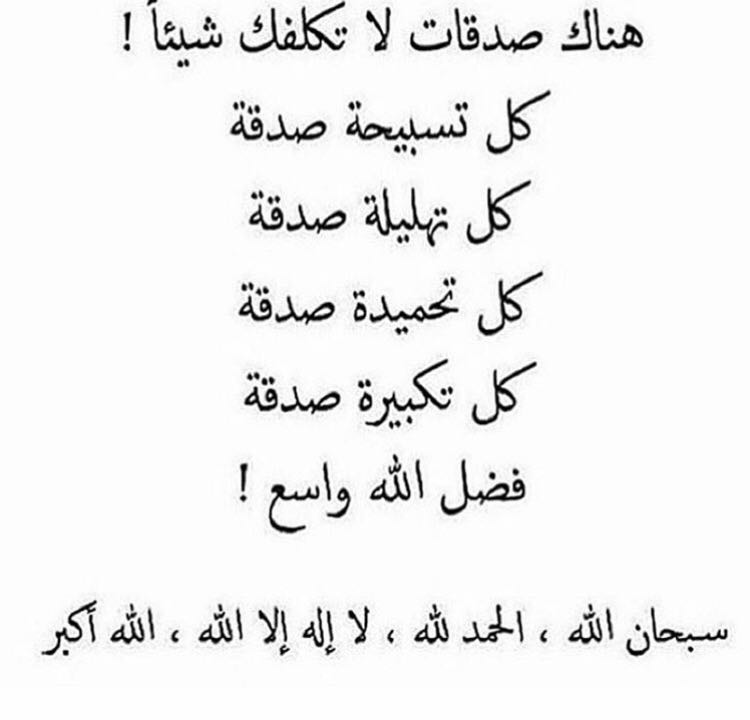 هناك صدقات لا تكلفك شيئاً !
كل تسبيحة صدقة
كل تهليلة صدقة
كل تحميدة صدقة
كل تكبيرة صدقة
فضل الله واسع !
سبحان الله ، الحمد لله ، لا إله إلا الله ، الله أكبر